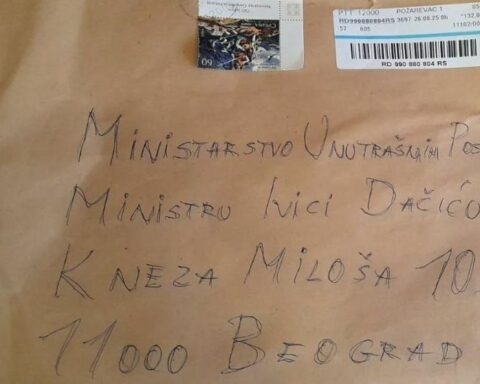 PTT 12000 POŽAREVAC 1
RD990880804RS 3697 26.08.25 8h
57 605
11102
RD 990 880 804 RS
60
MINISTARSTVO UNUTRAŠNJIH POS
MINISTRU IVICI DAČIĆU
KNEZA MILOŠA 10
11000 BEOGRAD